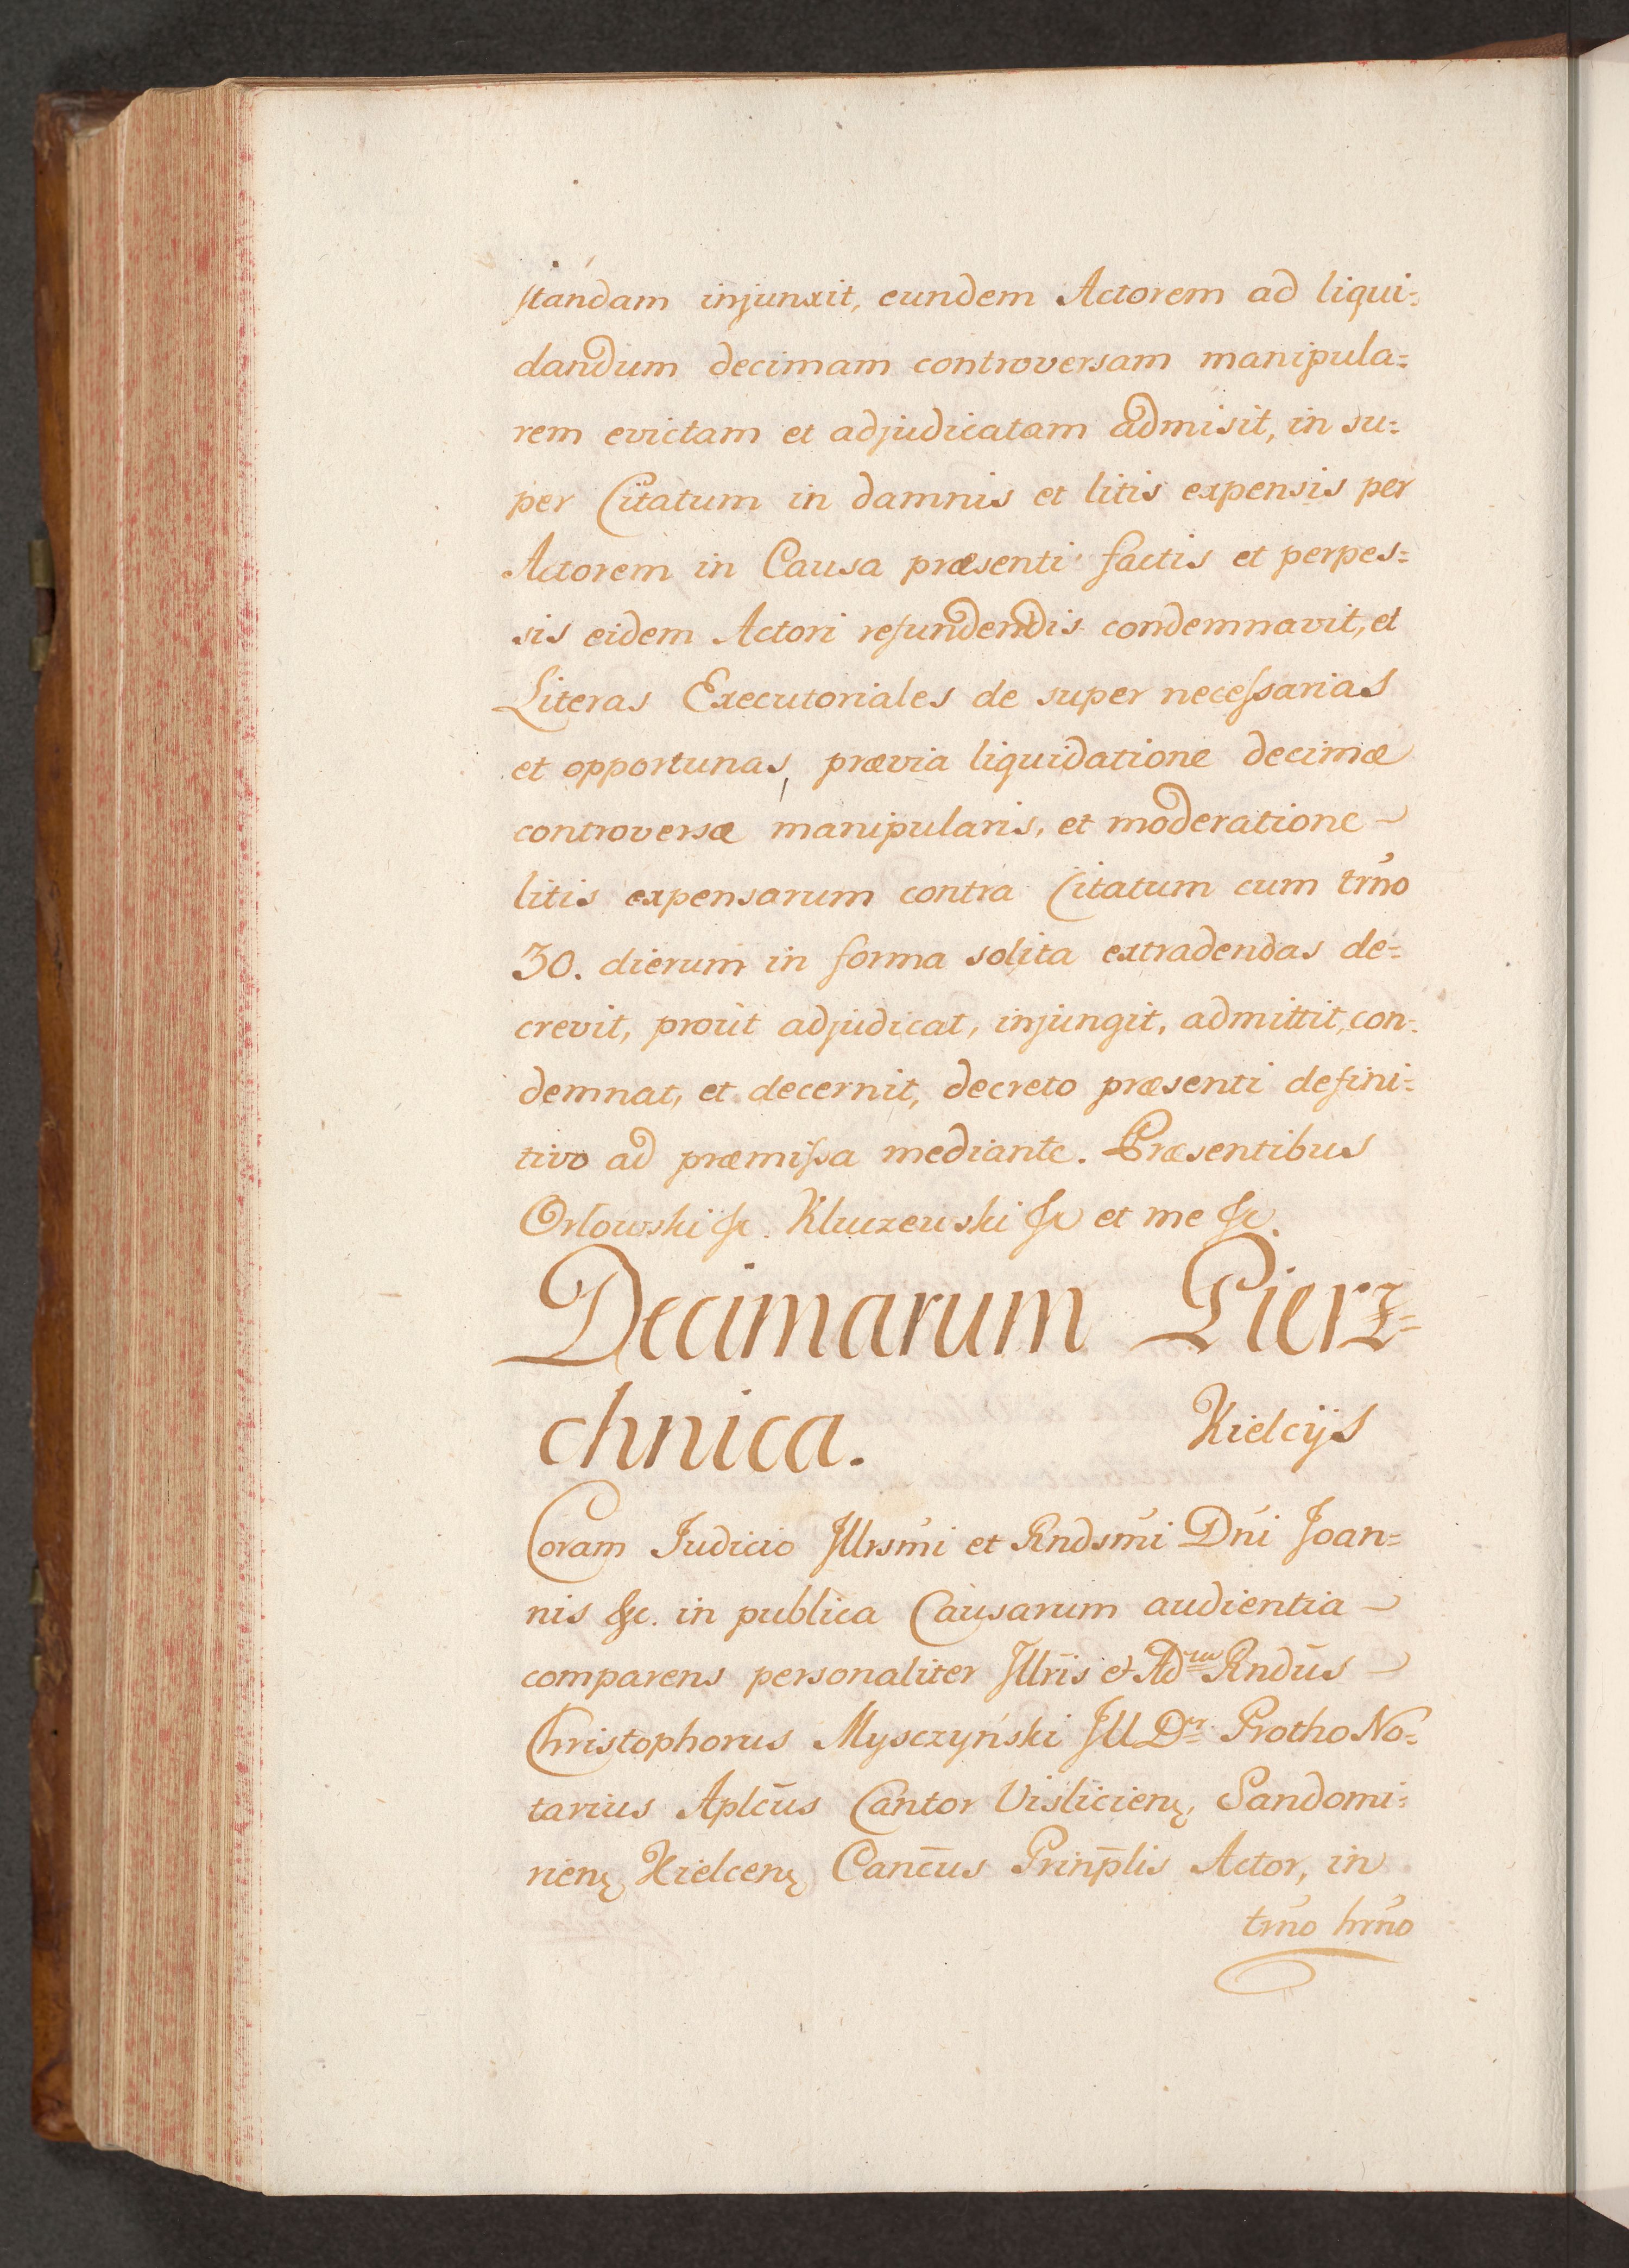 standam injunxit, eundem Actorem ad liqui=
dandum decimam controversam manipula=
rem evictam et adjudicatam admisit, in su=
per Citatum in damnis et litis expensis per
Actorem in Causa præsenti factis et perpes=
sis eidem Actori refundendis condemnavit, et
Literas Executoriales de super necessarias
et opportunas, prævia liquidatione decimæ
controversæ manipularis, et moderatione
litis expensarum contra Citatum cum trno
30. dierum in forma solita extradendas de=
crevit, prout adjudicat, injungit, admittit, con=
demnat, et decernit, decreto præsenti defini=
tivo ad præmissa mediante. Præsentibus
Orlowski &c. Kluczewski &c et me &c.
Decimarum Pierz=
chnica.
Kielcijs
Coram Judicio Illrsmi et Rndsmi Dni Joan=
nis &c. in publica Causarum audientia
comparens personaliter Illris et Adm Rndus
Christophorus Mysczyński JUDr. ProthoNo=
tarius Aplcus Cantor Vislicien, Sandomi=
rien, Kielcen, Cancus Prinplis Actor, in
trno hrno